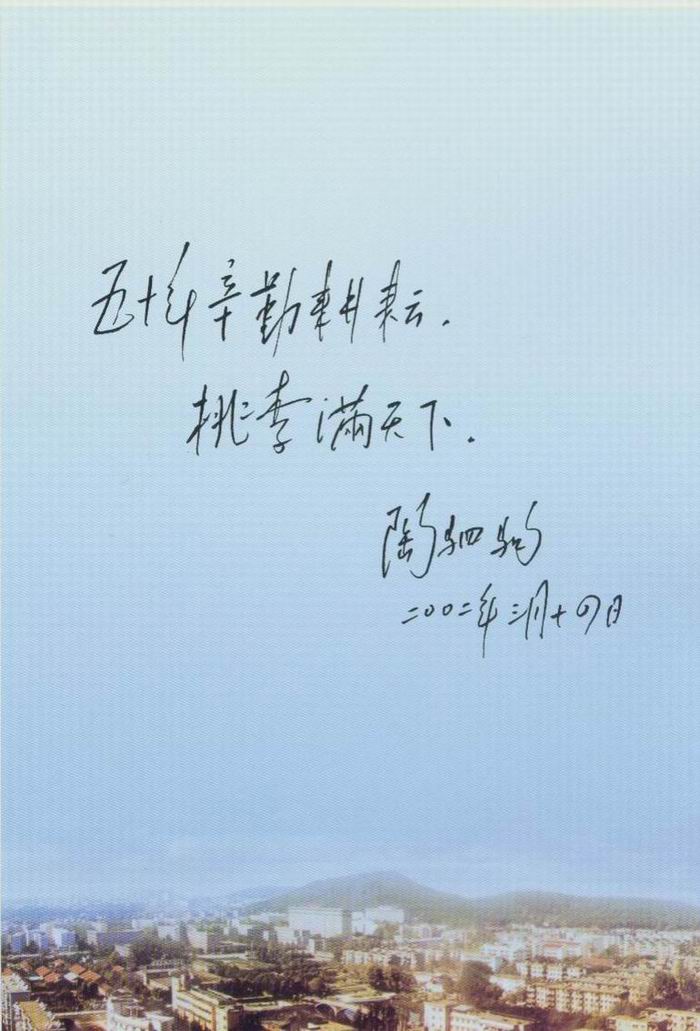 五十年辛勤耕耘.
桃李满天下.
陶驷驹
二〇〇二年三月十四日